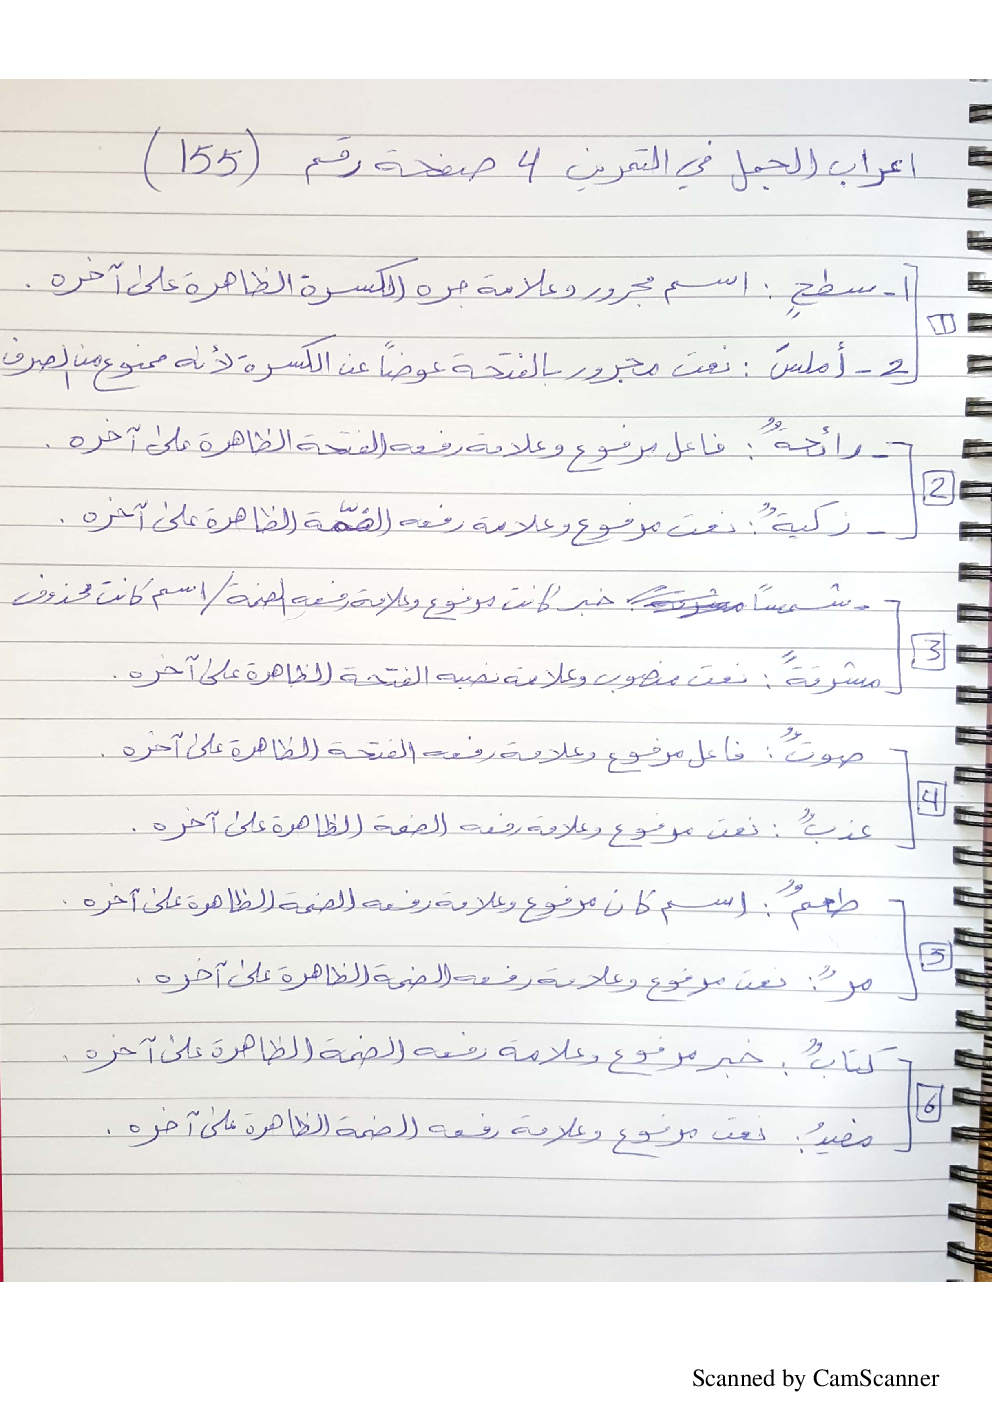 اعراب الجمل في التمرين 4 صفحة رقم (155)
1- سطحٍ : اسم مجرور وعلامة جره الكسرة الظاهرة على آخره .
[1]
2- أملسَ : نعت مجرور بالفتحة عوضاً عن الكسرة لأنه ممنوع من الصرف
- رائحةٌ : فاعل مرفوع وعلامة رفعه الفتحة الظاهرة على آخره .
[2]
- زكيةٌ : نعت مرفوع وعلامة رفعه الضمّة الظاهرة على آخره .
- شمساً خبر كانت مرفوع وعلامة رفعه الضمة / اسم كانت محذوف
[3]
مشرقةً : نعت منصوب وعلامة نصبه الفتحة الظاهرة على آخره .
صوتٌ : فاعل مرفوع وعلامة رفعه الفتحة الظاهرة على آخره .
[4]
عذبٌ : نعت مرفوع وعلامة رفعه الضمة الظاهرة على آخره .
طعمٌ : اسم كان مرفوع وعلامة رفعه الضمة الظاهرة على آخره .
[5]
مرٌ : نعت مرفوع وعلامة رفعه الضمة الظاهرة على آخره .
كتابٌ : خبر مرفوع وعلامة رفعه الضمة الظاهرة على آخره .
[6]
مفيدٌ : نعت مرفوع وعلامة رفعه الضمة الظاهرة على آخره .
Scanned by CamScanner